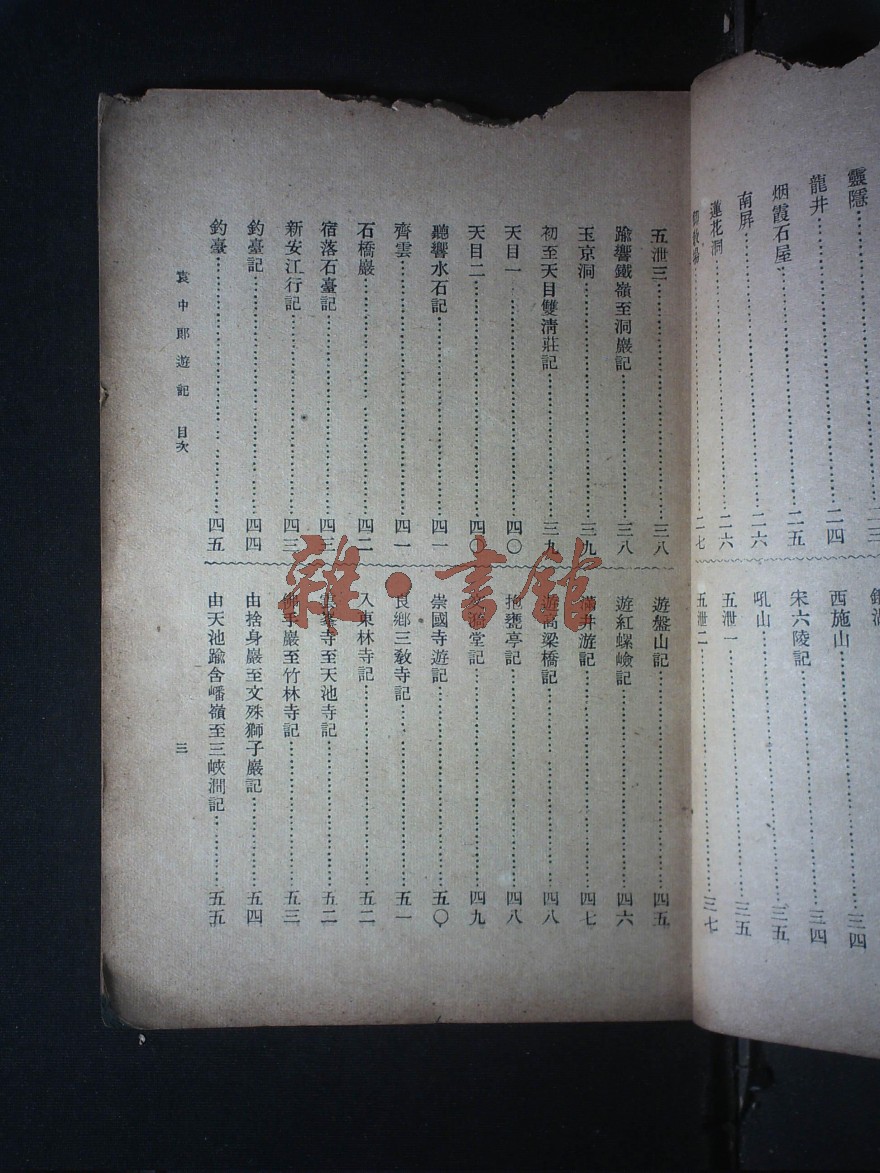 靈隱……二三
龍井……二四
烟霞石屋……二五
南屏……二六
蓮花洞……二六
……二七
西施山……三四
宋六陵記……三四
吼山……三五
五泄一……三五
五泄二……三七
五泄三……三八
踰響鐵嶺至洞巖記……三八
玉京洞……三九
初至天目雙清莊記……三九
天目一……四〇
天目二……四〇
聽響水石記……四一
齊雲……四一
石橋巖……四二
宿落石臺記……四三
新安江行記……四三
釣臺記……四四
釣臺……四五
遊盤山記……四五
遊紅螺嶮記……四六
滿井游記……四七
遊高梁橋記……四八
抱甕亭記……四八
文漪堂記……四九
崇國寺遊記……五〇
良鄉三敎寺記……五一
入東林寺記……五二
雲峯寺至天池寺記……五二
佛手巖至竹林寺記……五三
由捨身巖至文殊獅子巖記……五四
由天池踰含嶓嶺至三峽澗記……五五
袁中郎遊記 目次
三
雜·書館